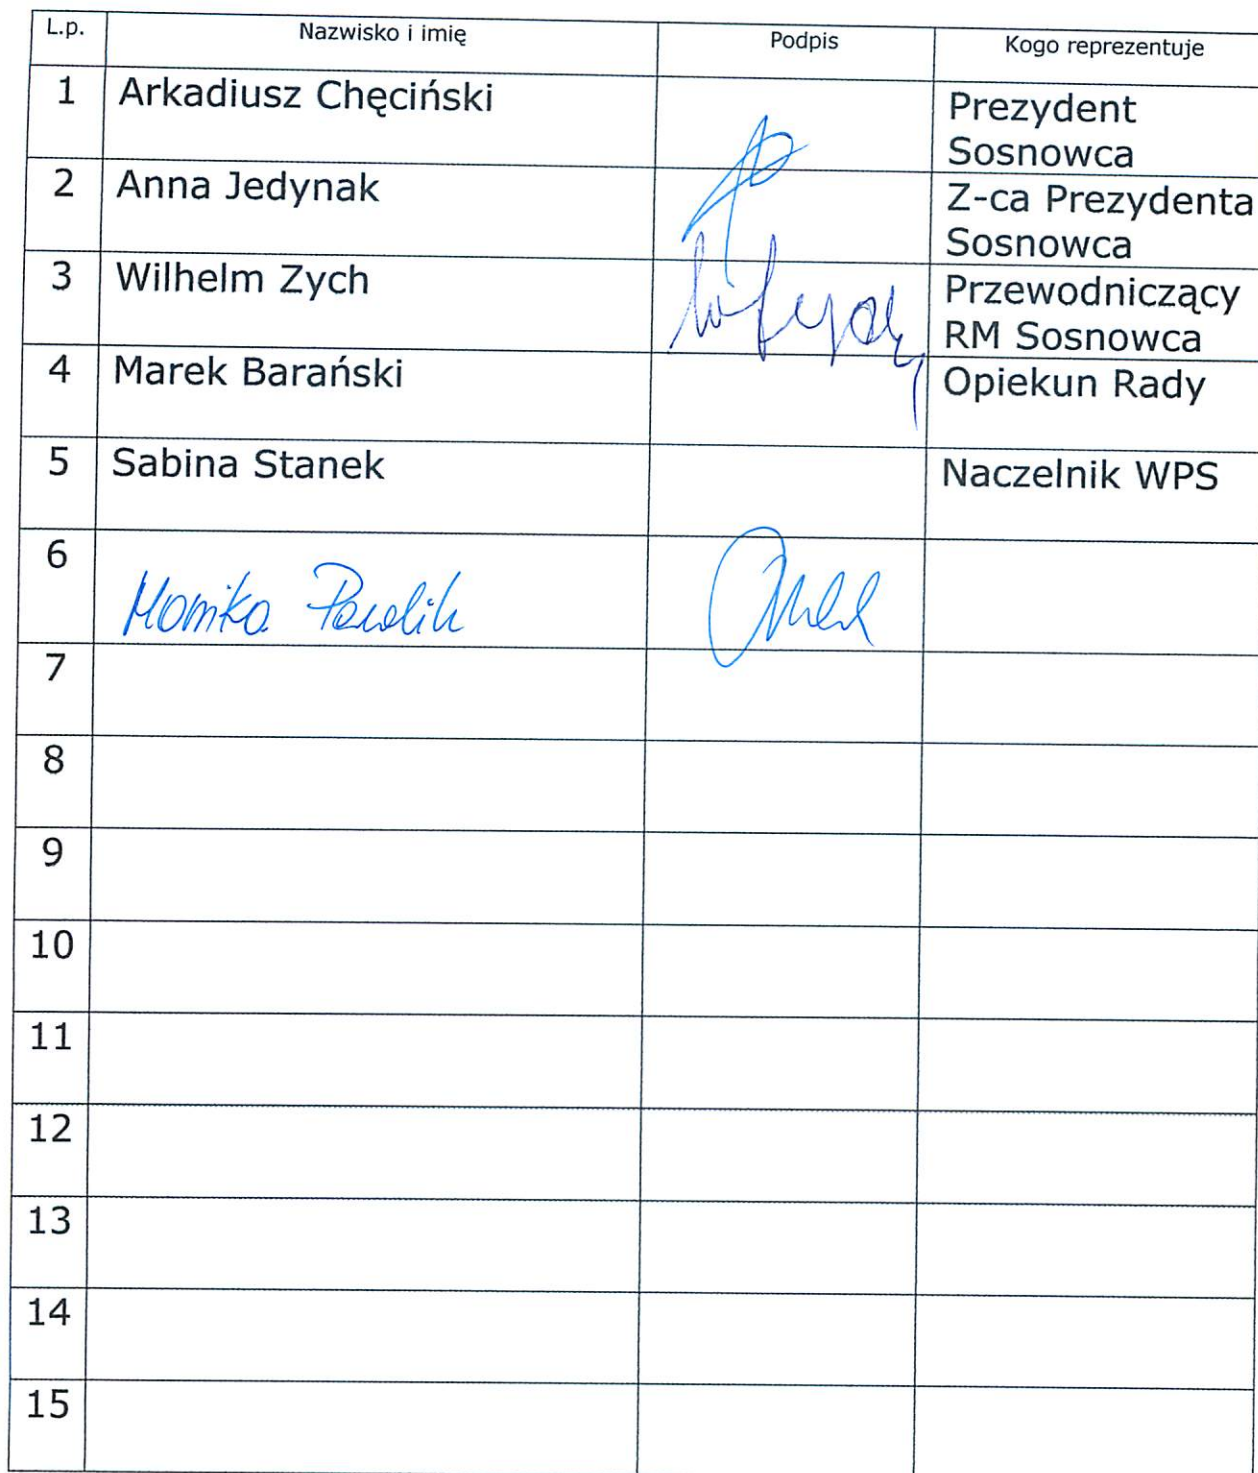 L.p. Nazwisko i imię Podpis Kogo reprezentuje
1 Arkadiusz Chęciński Prezydent
Sosnowca
2 Anna Jedynak Z-ca Prezydenta
Sosnowca
3 Wilhelm Zych Przewodniczący
RM Sosnowca
4 Marek Barański Opiekun Rady
5 Sabina Stanek Naczelnik WPS
6 Monika
7
8
9
10
11
12
13
14
15